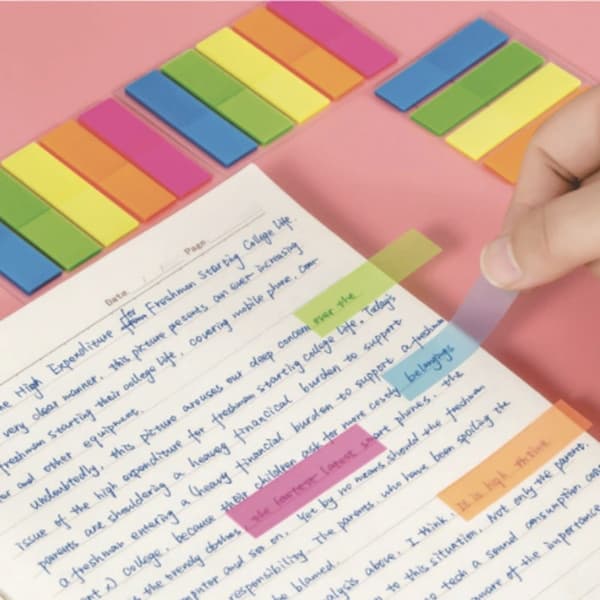 Date / / Page
he High Expenditure for Freshman Starting College Life.
very clear manner, this picture presents an ever increasing
freshman starting their college life, covering mobile phone, com
er and other equipment.
undoubtedly, this picture arouses our deep concern over the
issue of the high expenditure for freshmen starting college life. Today's
parents are shouldering a heavy financial burden to support
a freshman entering a (heavy financial burden to support a freshman
college, because their children ask for more costly belongings
the trendy clothes the fastest latest smart phones, the
computer and so on. Yet by no means should the freshman
responsibility. The parents, who have been spoiling the
be blamed. It is high thrive
analysis above, I think
to this situation. Not only the parents
tech a sound consumption
aware of the importance